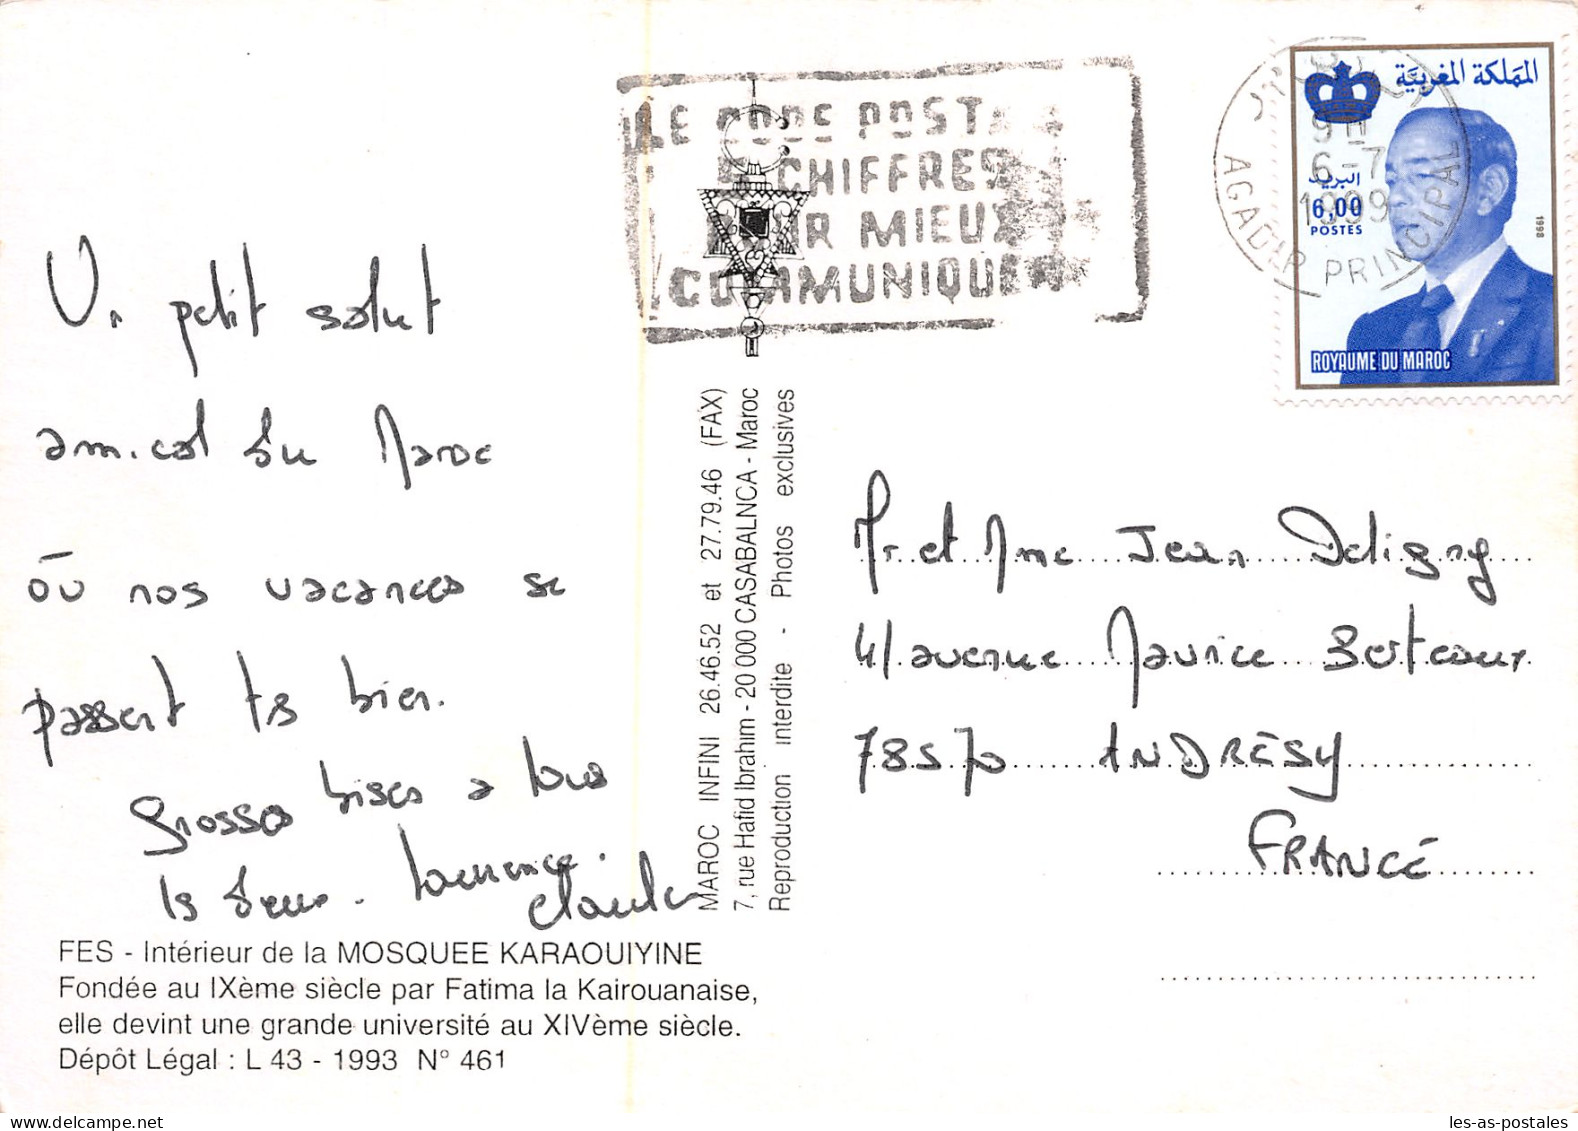 Un petit salut
amical du Maroc
où nos vacances se
passent ts bien.
Grosses bises a tous
ts deux. Laurence.
FES - Intérieur de la MOSQUEE KARAOUIYINE
Fondée au IXème siècle par Fatima la Kairouanaise,
elle devint une grande université au XIVème siècle.
Dépôt Légal : L 43 - 1993 N° 461
MAROC INFINI 26.46.52 et 27.79.46 (FAX)
7, rue Hafid Ibrahim - 20 000 CASABALNCA - Maroc
Reproduction interdite - Photos exclusives
LE CODE POSTAL
5 CHIFFRES
POUR MIEUX
COMMUNIQUER
9H
6-7
1999
AGADIR PRINCIPAL
المملكة المغربية
البريد
6,00
POSTES
1998
ROYAUME DU MAROC
Mr et Mme Jean Deligny
41 avenue Maurice Berteaux
78570 ANDRÉSY
FRANCE
les-as-postales